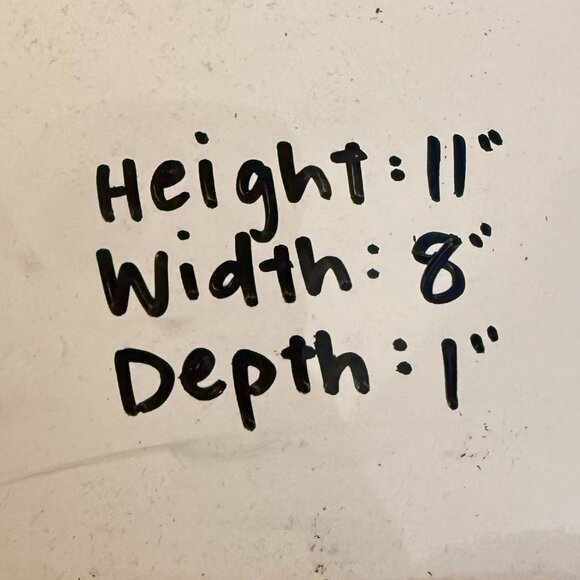 Height: 11"
Width: 8"
Depth: 1"